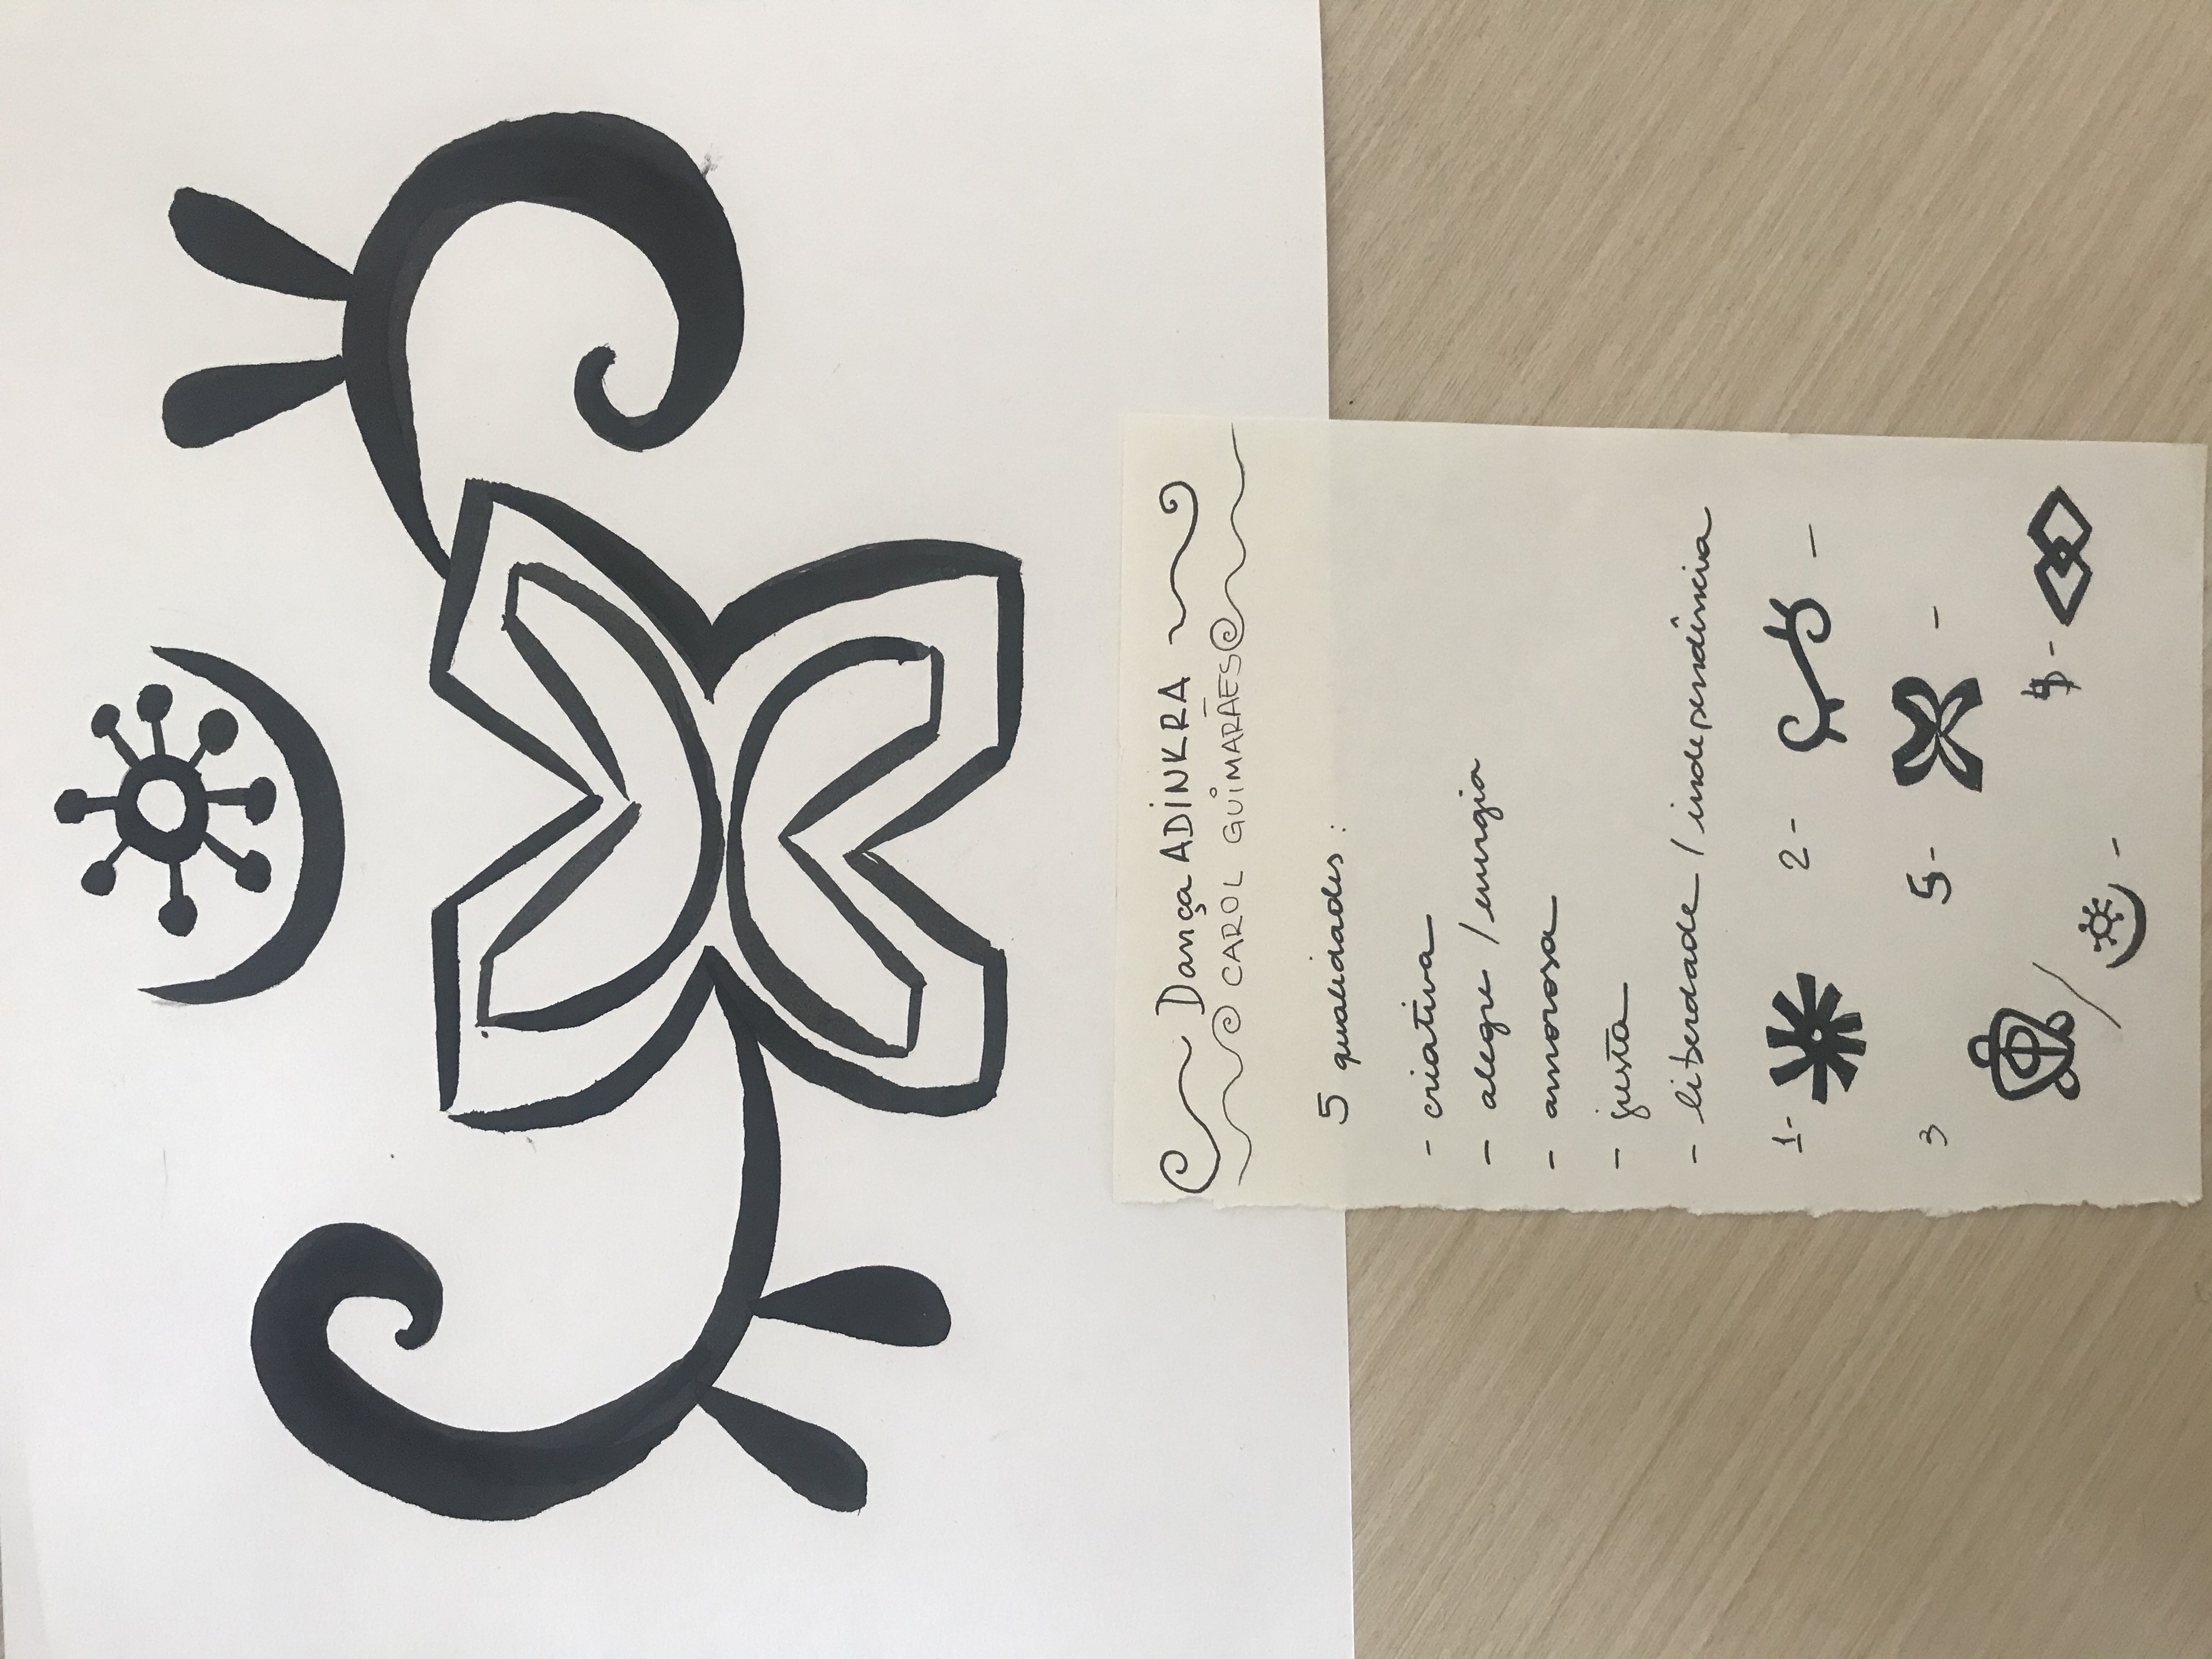 Dança ADINKRA
CAROL GUIMARÃES
5 qualidades :
- criativa
- alegre / energia
- amorosa
- justa
- liberdade / independência
1- 2 - -
3 5- -
/ 4 -
-